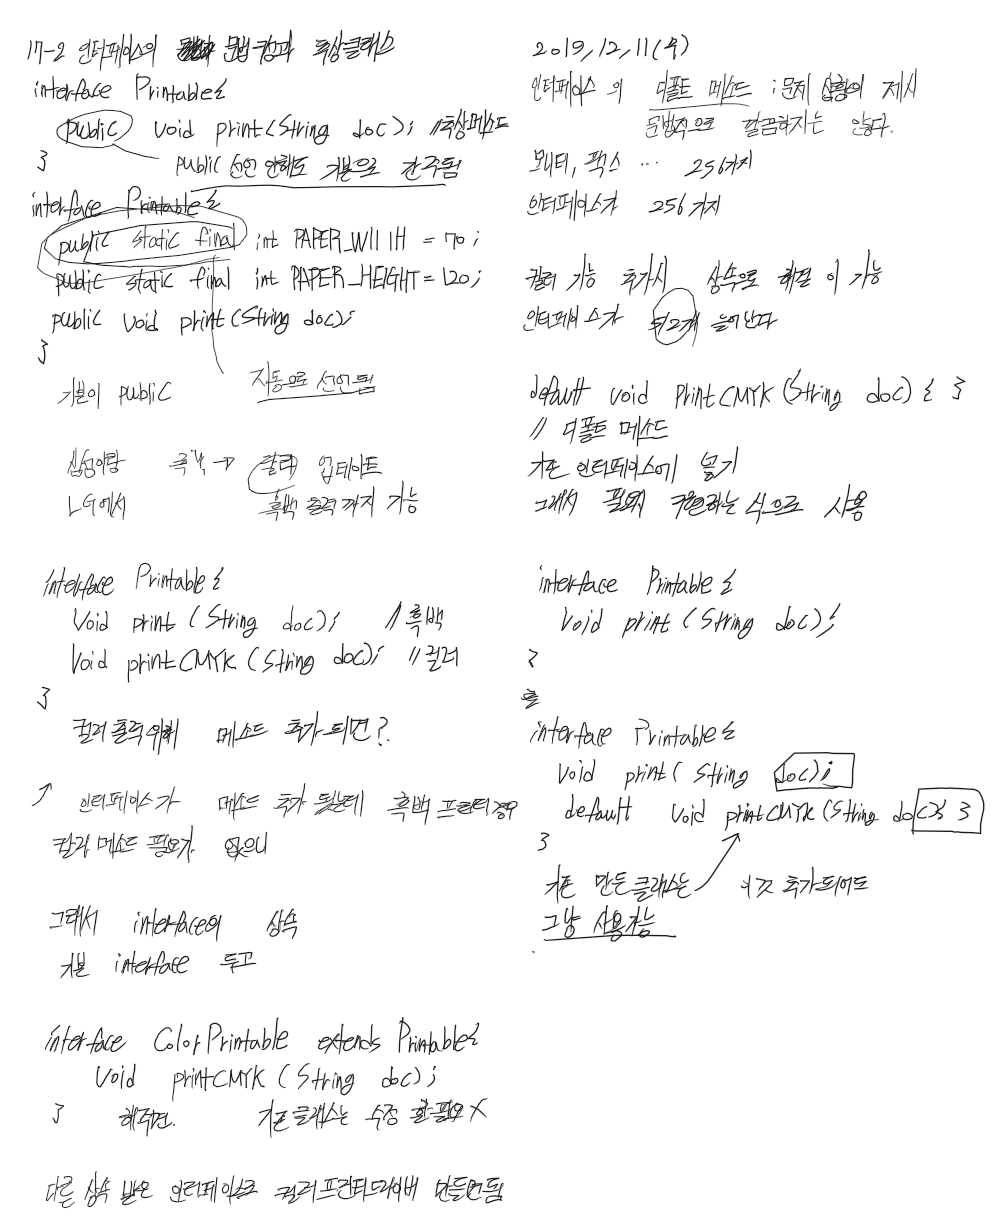 17-2 인터페이스의 문법 구성과 추상클래스
interface Printable {
public void print(String doc); //추상메소드
}
public 선언 안해도 기본으로 간주됨
interface Printable {
public static final int PAPER_WIDTH = 70;
public static final int PAPER_HEIGHT = 120;
public void print(String doc);
}
기본이 public 자동으로 선언됨
삼성이랑 흑백 → 칼라 업데이트
LG에서 흑백 출력 까지 가능
interface Printable {
void print (String doc); //흑백
void printCMYK (String doc); //컬러
}
컬러출력위해 메소드 추가 되면?
↗ 인터페이스가 메소드 추가 됬는데 흑백 프린터경우
칼라 메소드 필요가 없으니
그래서 interface의 상속
기본 interface 두고
interface ColorPrintable extends Printable {
void printCMYK (String doc);
} 해주면. 기존클래스는 수정 할필요 X
다른 상속 받은 인터페이스로 컬러프린터드라이버 만들면됨
2019.12.11(수)
인터페이스 의 디폴트 메소드 : 문제 상황의 제시
문법적으로 깔끔하지는 않다.
모니터, 팩스 ... 256가지
인터페이스가 256가지
컬러 기능 추가시 상속으로 해결 이 가능
인터페이스가 또2개 늘어난다
default void printCMYK (String doc) { }
// 디폴트 메소드
기존 인터페이스에 넣기
그래서 필요시 구현하는 식으로 사용
interface Printable {
void print (String doc);
}
를
interface Printable {
void print( String doc);
default void printCMYK (String doc){ }
}
기존 만든클래스는 이것 추가되어도
그냥 사용가능